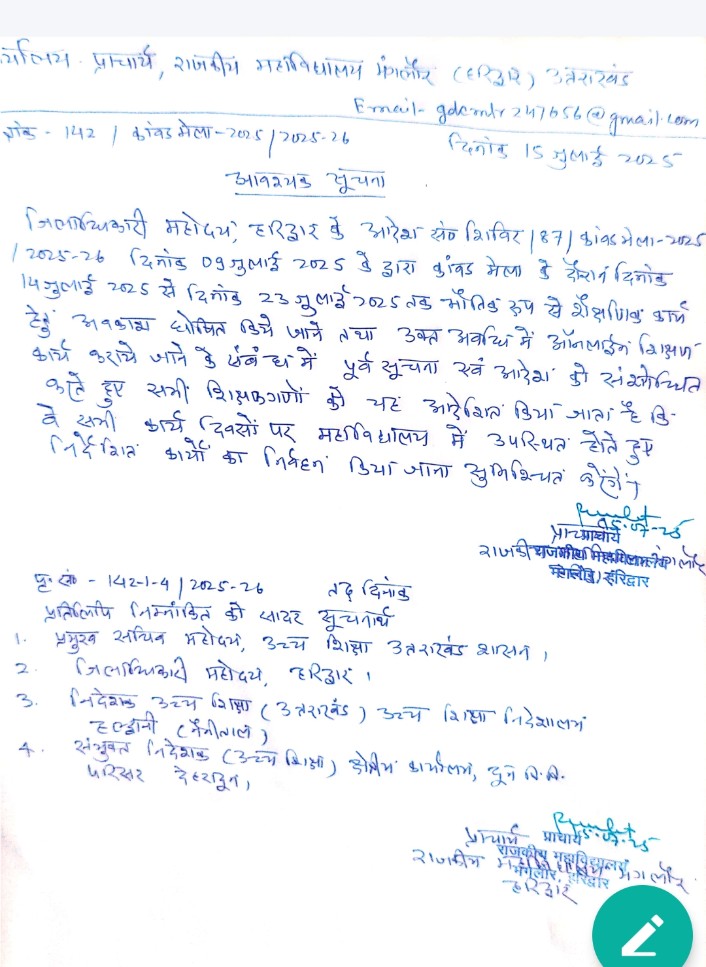 कार्यालय प्राचार्य, राजकीय महाविद्यालय मंगलौर (हरिद्वार) उत्तराखंड
Email- gdcmlr247656@gmail.com
142 / कांवड मेला-2025/2025-26
दिनांक 15 जुलाई 2025
आवश्यक सूचना
जिलाधिकारी महोदय, हरिद्वार के आदेश सं० शिविर/87/कांवड मेला-2025
/2025-26 दिनांक 09 जुलाई 2025 के द्वारा कांवड मेला के दौरान दिनांक
14 जुलाई 2025 से दिनांक 23 जुलाई 2025 तक भौतिक रूप से शैक्षणिक कार्य
हेतु अवकाश घोषित किये जाने तथा उक्त अवधि में ऑनलाईन शिक्षण
कार्य कराये जाने के संबंध में पूर्व सूचना एवं आदेश को संशोधित
करते हुए सभी शिक्षकगणों को यह आदेशित किया जाता है कि
वे सभी कार्य दिवसों पर महाविद्यालय में उपस्थित होते हुए
निर्देशित कार्यों का निर्वहन किया जाना सुनिश्चित करेंगे।
प्राचार्य
मंगलौर, हरिद्वार
पृ. सं० - 142-1-4/2025-26 तद् दिनांक
प्रतिलिपि निम्नांकित को सादर सूचनार्थ
1. प्रमुख सचिव महोदय, उच्च शिक्षा उत्तराखंड शासन।
2. जिलाधिकारी महोदय, हरिद्वार।
3. निदेशक उच्च शिक्षा (उत्तराखंड) उच्च शिक्षा निदेशालय
हल्द्वानी (नैनीताल)
4. संयुक्त निदेशक (उच्च शिक्षा) क्षेत्रीय कार्यालय, दून वि.वि.
परिसर देहरादून,
प्राचार्य प्राचार्य
राजकीय महाविद्यालय
राजकीय महाविद्यालय मंगलौर
मंगलौर, हरिद्वार
हरिद्वार